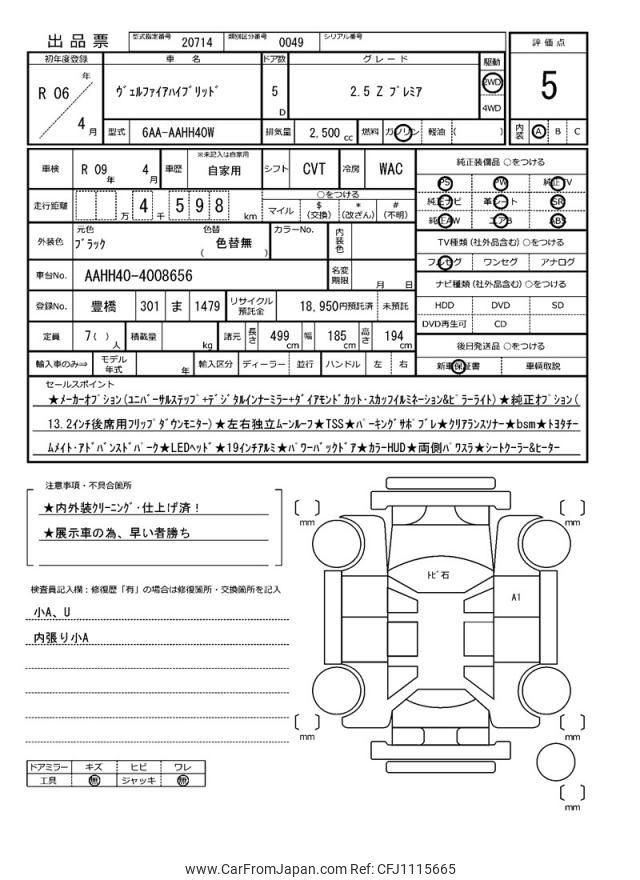 出品票 型式指定番号 20714 類別区分番号 0049 シリアル番号
初年度登録 車名 ドア数 グレード 駆動 評価点
R 06 年 4 月 ヴェルファイアハイブリッド 5 D 2.5 Z プレミア 2WD 4WD 5
型式 6AA-AAHH40W 排気量 2,500 cc 燃料 ガソリン 軽油 ( ) 内装 A B C
車検 R 09 年 4 月 車歴 ※未記入は自家用 自家用 シフト CVT 冷房 WAC 純正装備品 ○をつける
PS PW 純正TV
走行距離 万 4 千 5 9 8 km ○をつける マイル $ (交換) * (改ざん) # (不明) 純正ナビ 革シート SR
純正AW エアB ABS
外装色 元色 ブラック 色替 ( 色替無 ) カラーNo. 内装色 TV種類 (社外品含む) ○をつける
フルセグ ワンセグ アナログ
車台No. AAHH40-4008656 名変期限 月 日 ナビ種類 (社外品含む) ○をつける
登録No. 豊橋 301 ま 1479 リサイクル預託金 18,950円預託済 未預託 HDD DVD SD
DVD再生可 CD
定員 7( ) 人 積載量 kg 諸元 長さ 499 cm 幅 185 cm 高さ 194 cm 後日発送品 ○をつける
輸入車のみ⇨ モデル年式 年 輸入区分 ディーラー 並行 ハンドル 左 右 新車保証書 車輌取説
セールスポイント
★メーカーオプション(ユニバーサルステップ+デジタルインナーミラー+ダイアモンドカット・スカッフイルミネーション&ピラーライト)★純正オプション(
13.2インチ後席用フリップダウンモニター)★左右独立ムーンルーフ★TSS★パーキングサポブレ★クリアランスソナー★bsm★トヨタチー
ムメイト・アドバンスドパーク★LEDヘッド★19インチアルミ★パワーバックドア★カラーHUD★両側パワスラ★シートクーラー&ヒーター
注意事項・不具合箇所
★内外装クリーニング・仕上げ済!
★展示車の為、早い者勝ち
検査員記入欄:修復歴「有」の場合は修復箇所・交換箇所を記入
小A、U
内張り小A
mm mm
トビ石
A1
mm mm
mm
ドアミラー キズ ヒビ ワレ
工具 無 ジャッキ 無
www.CarFromJapan.com Ref: CFJ1115665